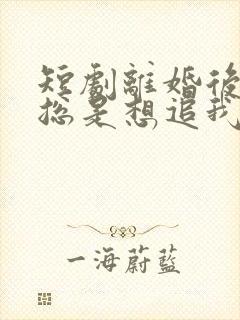 短劇離婚後
總是想追我
一海蔚藍